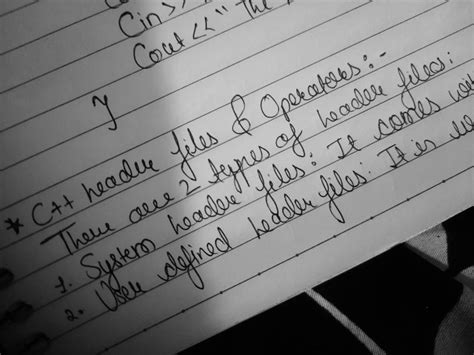 Cin>>
Cout<<"The
}
* C++ header files & Operators:-
There are 2 types of header files:
1. System header files: It comes wi
2. User defined header files: It is